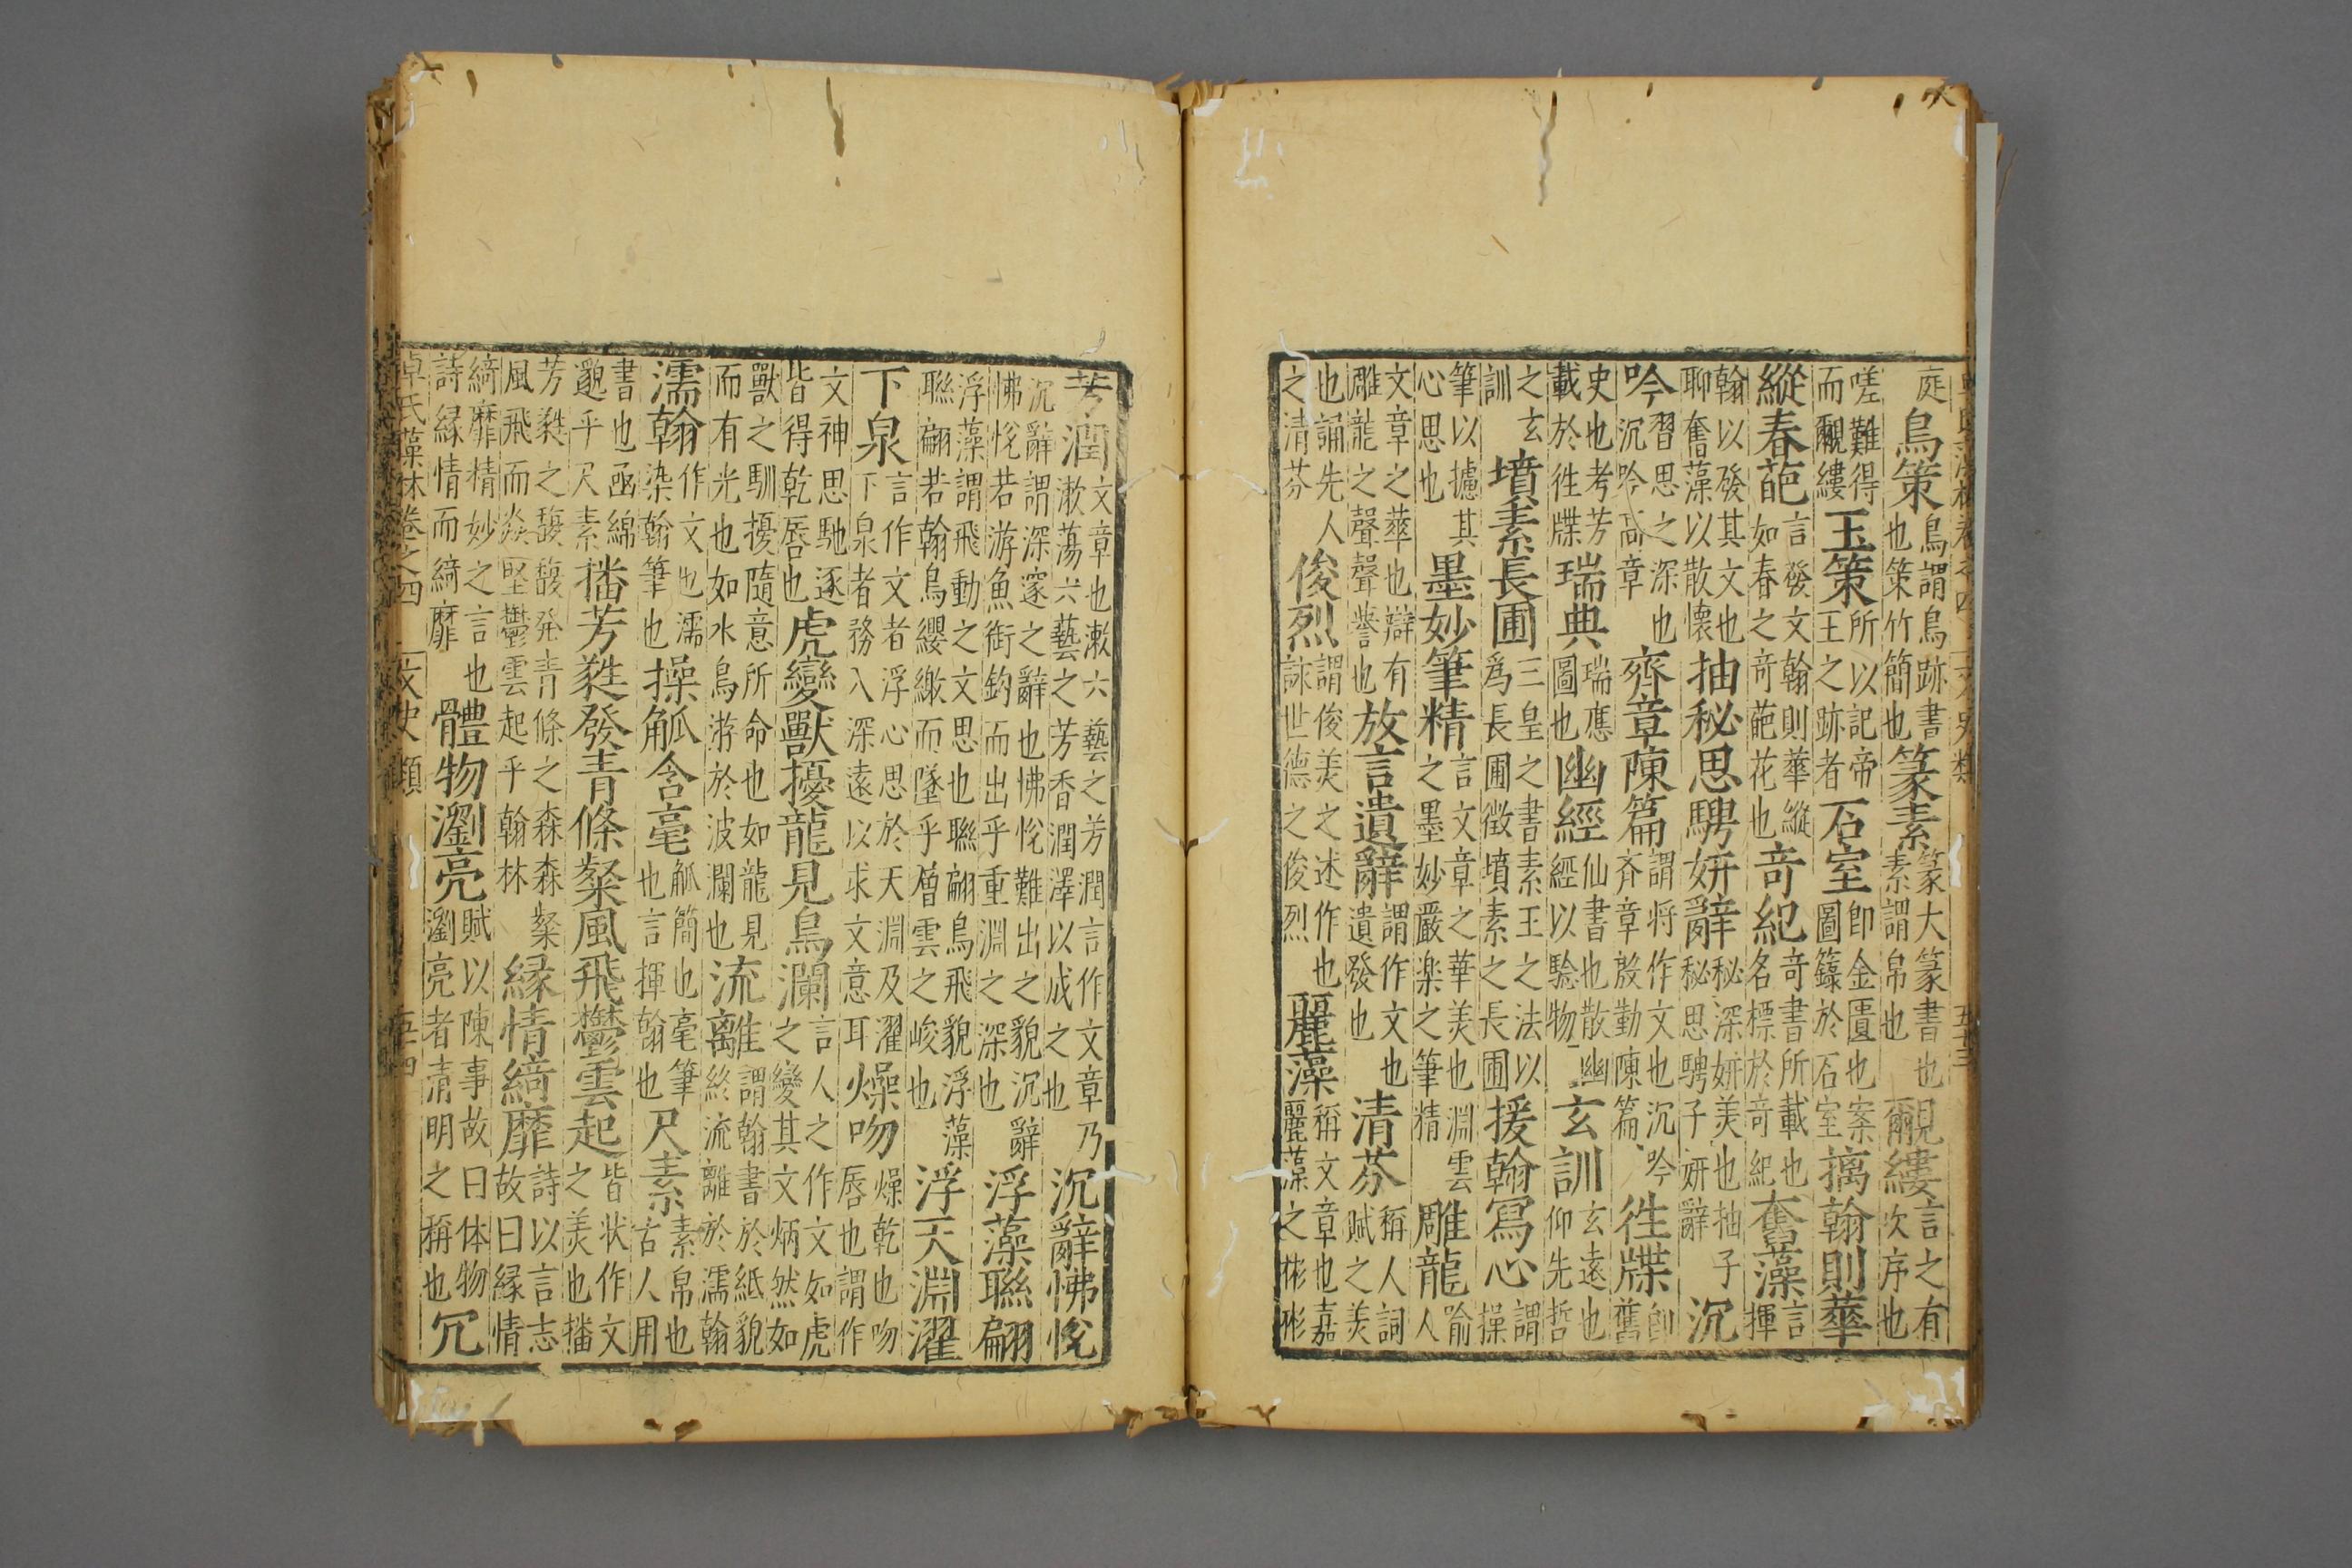 庭鳥策鳥謂鳥跡書也策竹簡也篆素篆大篆書也素謂帛也覼縷言之有次序也
嗟難得而覼縷玉策所以記帝王之跡者石室即金匱也案圖籙於石室摛翰則華
縱春葩言發文翰則華縱如春之竒葩花也竒紀竒書所載也名標於竒紀奮藻言揮
翰以發其文也聊奮藻以散懷抽秘思騁妍辭秘深妍美也抽子秘思騁子妍辭沉
吟習思之深也沉吟高章齊章陳篇謂将作文也沉吟齐章殷勤陳篇徃牒即舊
史也考芳載於徃牒瑞典瑞應圖也幽經仙書也散幽經以驗物玄訓玄遠也仰先哲
之玄訓墳素長圃三皇之書素王之法以爲長圃徴墳素之長圃援翰寫心謂操
筆以攄其心思也墨妙筆精言文章之華美也淵雲之墨妙嚴楽之筆精雕龍喻人
文章之華也辯有雕龍之聲聲譽也放言遺辭謂作文也遺發也清芬稱人詞賦之美
也誦先人之清芬俊烈謂俊美之述作也詠世德之俊烈麗藻稱文章也嘉麗藻之彬彬
芳潤文章也漱六藝之芳潤言作文章乃漱蕩六藝之芳香潤澤以成之也沉辭怫悅
沉辭謂深邃之辭也怫悅難出之貌沉辭怫悅若游魚銜鈎而出乎重淵之深也浮藻聯翩
浮藻謂飛動之文思也聯翩鳥飛貌浮藻聯翩若翰鳥纓繳而墜乎層雲之峻也浮天淵濯
下泉言作文者浮心思於天淵及濯下泉者務入深遠以求文意耳燥吻燥乾也吻唇也謂作
文神思馳逐皆得乾唇也虎變獸擾龍見鳥瀾言人之作文如虎之變其文炳然如
獸之馴擾隨意所命也如龍見而有光也如水鳥游於波瀾也流離謂翰書於紙貌終流離於濡翰
濡翰作文也濡染翰筆也操觚含毫觚簡也毫筆也言揮翰也尺素素帛也古人用
書也函綿邈乎尺素播芳蕤發青條粲風飛鬱雲起皆状作文之美也播
芳蕤之馥馥発青條之森森粲風飛而猋竪鬱雲起乎翰林縁情綺靡詩以言志故曰縁情
綺靡精妙之言也詩縁情而綺靡體物瀏亮賦以陳事故曰体物瀏亮者清明之稱也冗
卓氏藻林卷之四 文史類 五十四